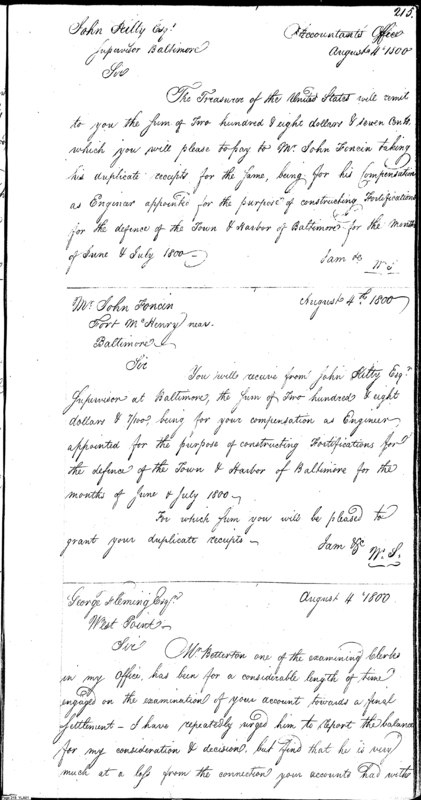 215.
John Kilty Esqr. Accountants Office
Supervisor Baltimore August 4th 1800
Sir
The Treasurer of the United States will remit
to you the sum of Two hundred & eight dollars & seven Cents.
which you will please to pay to Mr John Foncin taking
his duplicate receipts for the same, being for his Compensation
as Enginear appointed for the purpose of constructing Fortifications
for the defence of the Town & Harbor of Baltimore for the Months
of June & July 1800
I am &c
W. S.
Mr. John Foncin August 4th 1800
Fort McHenry near
Baltimore
Sir
You will receive from John Kilty Esqr.
Supervisor at Baltimore, the sum of Two hundred & eight
dollars & 7/100, being for your compensation as Engineer,
appointed for the purpose of constructing Fortifications for
the defence of the Town & Harbor of Baltimore for the
months of June & July 1800
For which sum you will be pleased to
grant your duplicate receipts I am &c
W. S.
George Fleming Esqr. August 4 1800
West Point
Sir Mr Betterton one of the examining Clerks
in my Office, has been for a considerable length of time
engaged on the examination of your account towards a final
settlement - I have repeatedly urged him to report the balance
for my consideration & decision, but find that he is very
much at a loss from the connection your accounts had with